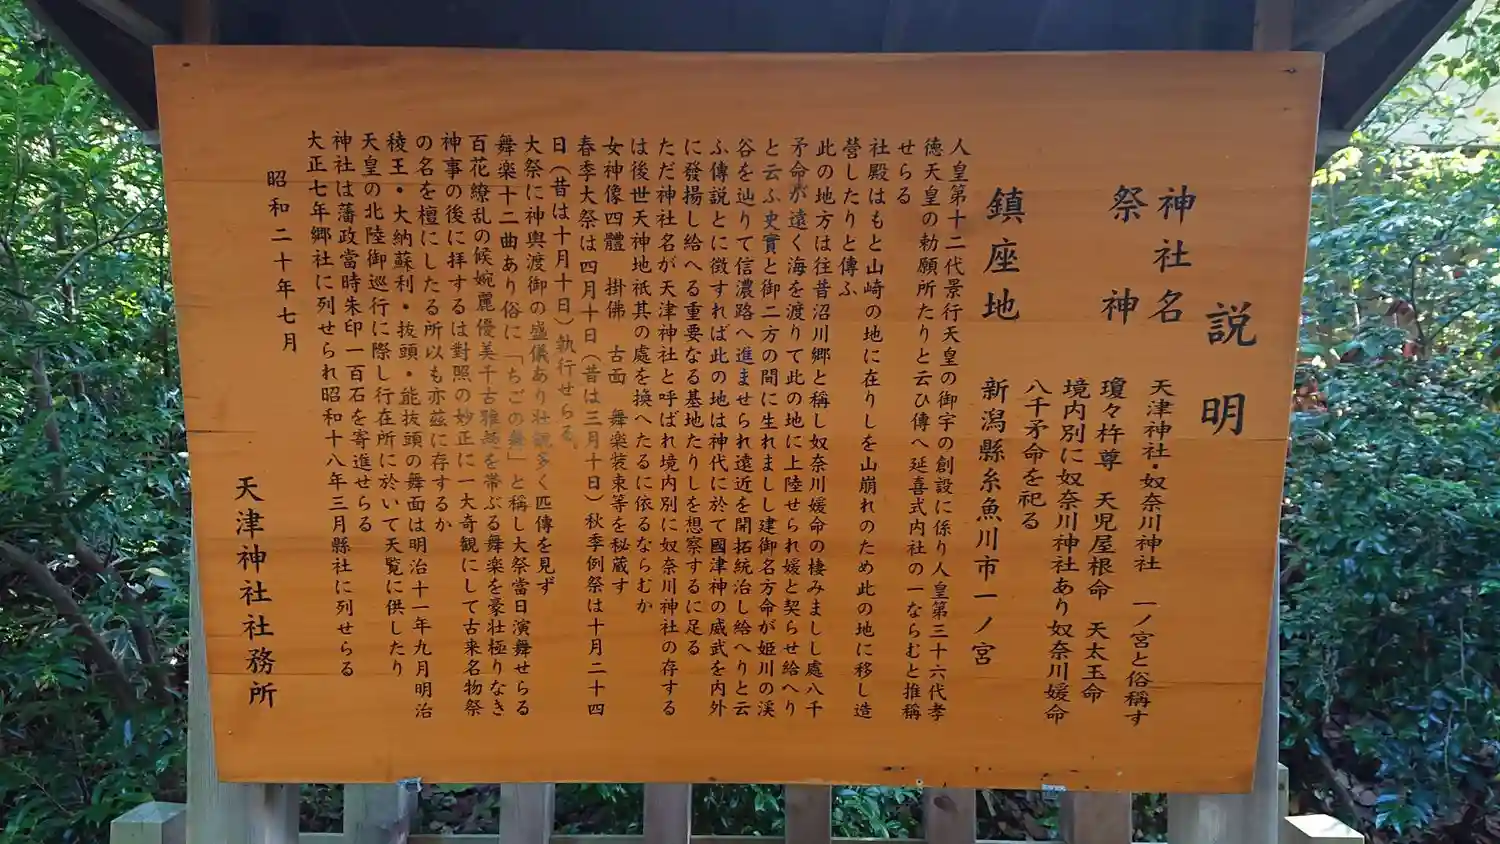 説明
神社名　天津神社・奴奈川神社　一ノ宮と俗稱す
祭神　瓊々杵尊　天児屋根命　天太玉命
境内別に奴奈川神社あり奴奈川媛命
八千矛命を祀る
鎮座地　新潟縣糸魚川市一ノ宮
人皇第十二代景行天皇の御宇の創設に係り人皇第三十六代孝
徳天皇の勅願所たりと云ひ傳へ延喜式内社の一ならむと推稱
せらる
社殿はもと山崎の地に在りしを山崩れのため此の地に移し造
營したりと傳ふ
此の地方は往昔沼川郷と稱し奴奈川媛命の棲みましし處八千
矛命が遠く海を渡りて此の地に上陸せられ媛と契らせ給へり
と云ふ史實と御二方の間に生れましし建御名方命が姫川の渓
谷を辿りて信濃路へ進ませられ遠近を開拓統治し給へりと云
ふ傳説とに徴すれば此の地は神代に於て國津神の威武を内外
に發揚し給へる重要なる基地たりしを想察するに足る
ただ神社名が天津神社と呼ばれ境内別に奴奈川神社の存する
は後世天神地祇其の處を換へたるに依るならむか
女神像四體　掛佛　古面　舞楽装束等を秘蔵す
春季大祭は四月十日（昔は三月十日）秋季例祭は十月二十四
日（昔は十月十日）執行せらる、
大祭に神輿渡御の盛儀あり壮観多く匹傳を見ず
舞楽十二曲あり俗に「ちごの舞」と稱し大祭當日演舞せらる
百花繚乱の候婉麗優美千古雅趣を帯ぶる舞楽を豪壮極りなき
神事の後に拝するは對照の妙正に一大奇観にして古来名物祭
の名を檀にしたる所以も亦茲に存するか
稜王・大納蘇利・抜頭・能抜頭の舞面は明治十一年九月明治
天皇の北陸御巡行に際し行在所に於いて天覧に供したり
神社は藩政當時朱印一百石を寄進せらる
大正七年郷社に列せられ昭和十八年三月縣社に列せらる
昭和二十年七月
天津神社社務所